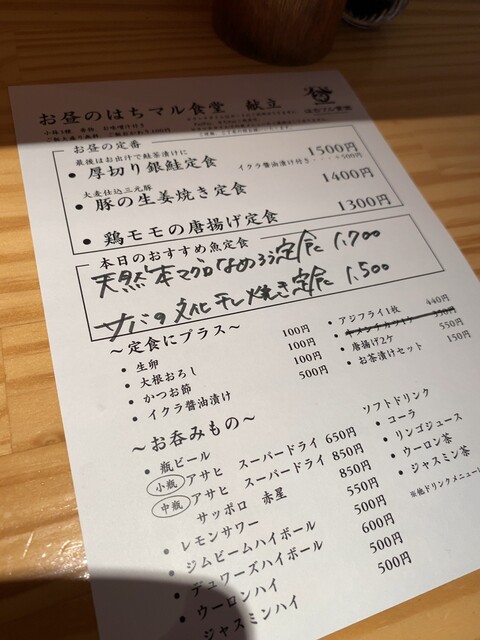 お昼のはちマル食堂 献立
お昼の定番
最後はお出汁で鮭茶漬けに
• 厚切り銀鮭定食 1500円
イクラ醤油漬け付き・・・+500円
大麦仕込三元豚
• 豚の生姜焼き定食 1400円
• 鶏モモの唐揚げ定食 1300円
本日のおすすめ魚定食
天然本マグロなめろう定食 1,700
サバの文化干し焼き定食 1,500
〜定食にプラス〜
• 生卵 100円
• 大根おろし 100円
• かつお節 100円
• イクラ醤油漬け 500円
• アジフライ1枚 440円
• 唐揚げ2ケ 550円
• お茶漬けセット 150円
〜お呑みもの〜
• 瓶ビール
小瓶 アサヒ スーパードライ 650円
中瓶 アサヒ スーパードライ 850円
サッポロ 赤星 850円
• レモンサワー 550円
• ジムビームハイボール 500円
• デュワーズハイボール 600円
• ウーロンハイ 500円
ジャスミンハイ 500円
ソフトドリンク
• コーラ
• リンゴジュース
• ウーロン茶
• ジャスミン茶
※他ドリンクメニュー